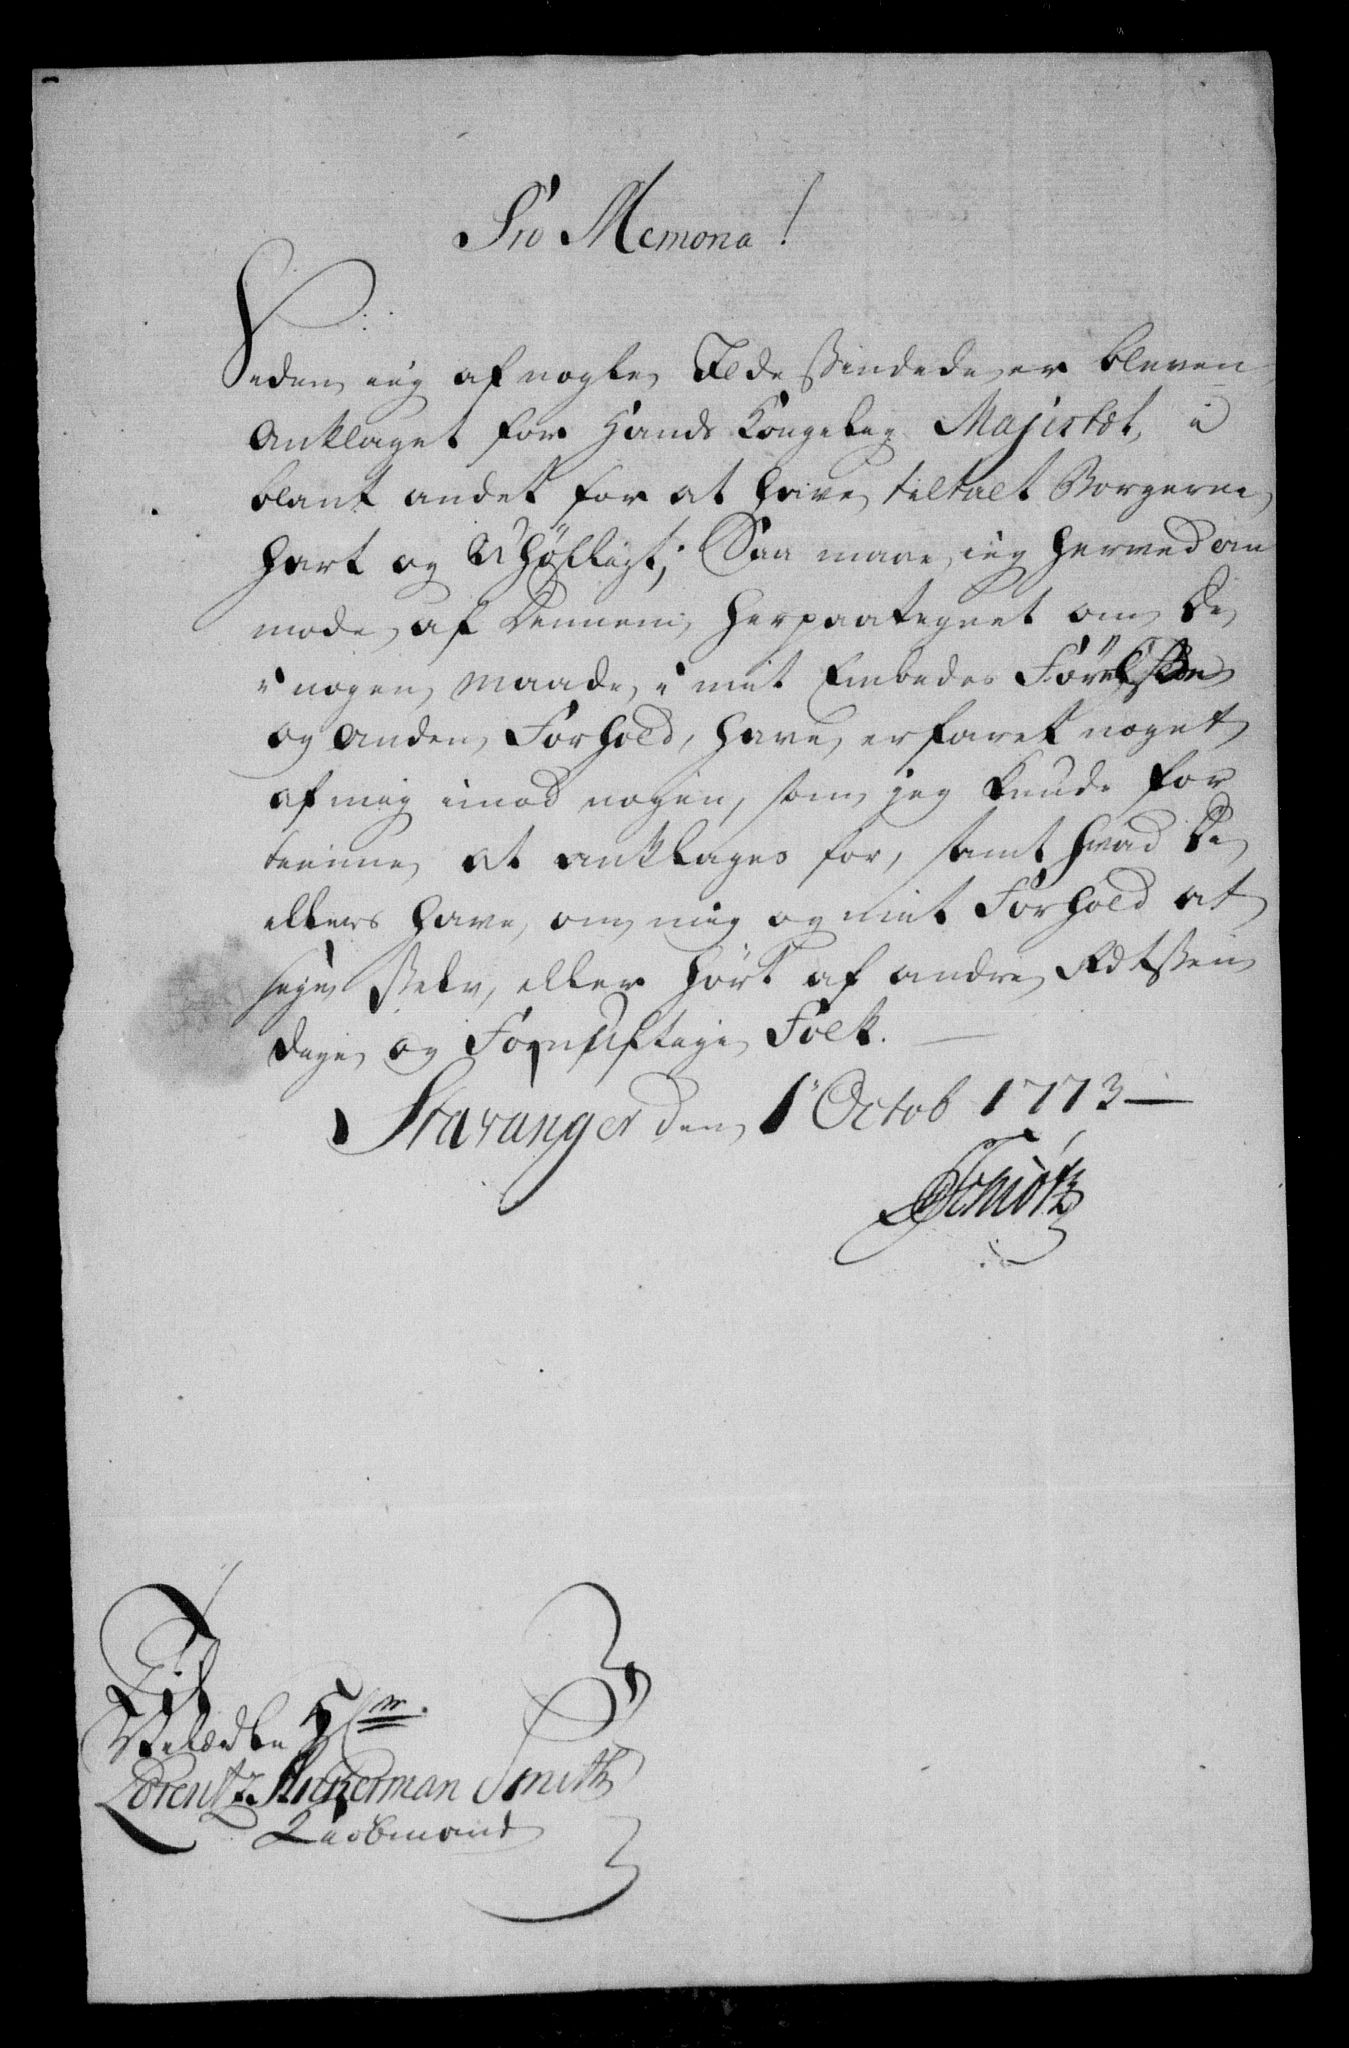 Pro Memoria!
Siden ieg af nogle Ildesindede er bleven
Anklaget for Hands Kongelig Majestæt, i
blant andet for at have tiltalt Borgerne
hart og Uhøfligt; Saa maae ieg herved an
mode af Dennem herpaategnet om De
i nogen maade i mit Embedes Førelse
og anden Forhold, have erfaret noget
af mig imod nogen, som jeg kunde for
tienne at anklages for, samt hvad De
ellers have om mig og mit Forhold at
sige selv, eller hørt af andre Retsin
dige og Fornuftige Folk.
Stavanger den 1 Octob 1773
Til
Velædle Hr
Lorentz Ankerman Smith
Kiøbmand